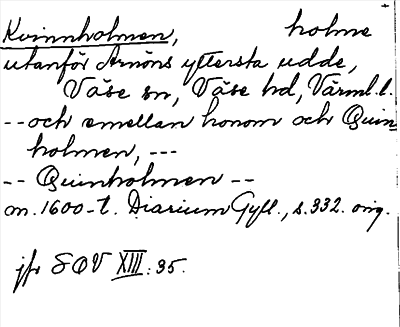 Kvinnholmen, holme
utanför Arnöns yttersta udde,
Väse sn, Väse hd, Värml. l.
-- och emellan honom och Quin-
holmen, ---
-- Quinholmen --
m. 1600-t. Diarium Gyll., s. 332. orig.
jfr SOV XIII: 35.